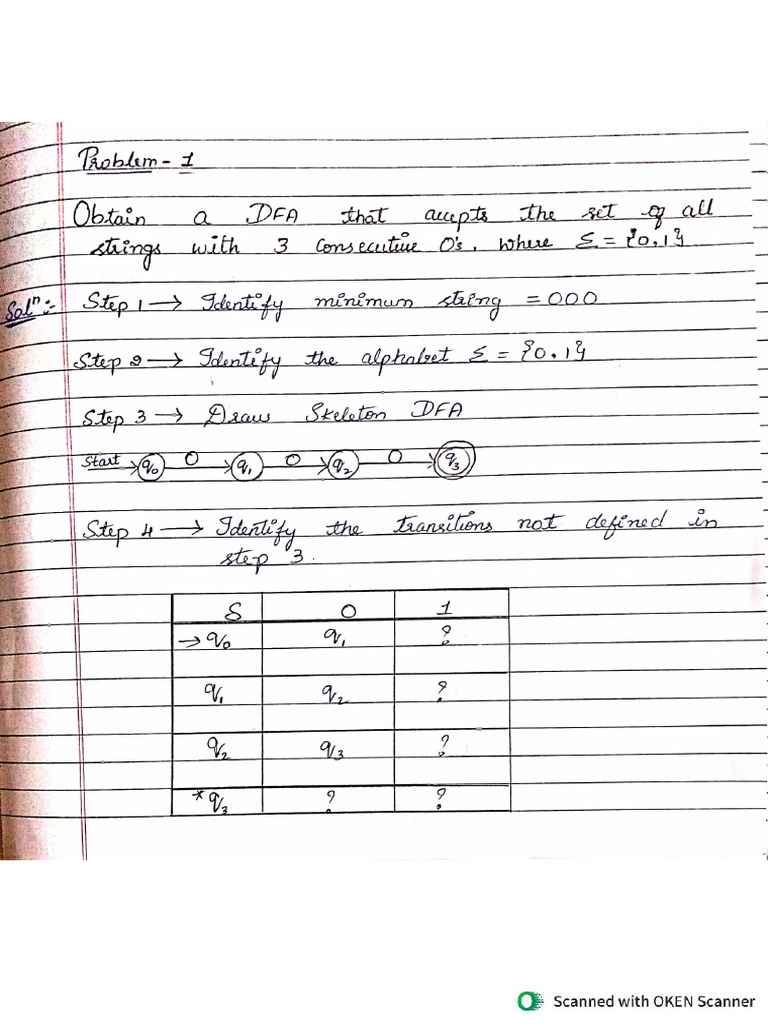 Problem - 1
Obtain a DFA that accepts the set of all
strings with 3 consecutive 0's. where Σ = {0,1}
Solⁿ:- Step 1 → Identify minimum string = 000
Step 2 → Identify the alphabet Σ = {0,1}
Step 3 → Draw Skeleton DFA
Start → q₀ 0 → q₁ 0 → q₂ 0 → q₃
Step 4 → Identify the transitions not defined in
step 3.
δ 0 1
→ q₀ q₁ ?
q₁ q₂ ?
q₂ q₃ ?
* q₃ ? ?
Scanned with OKEN Scanner